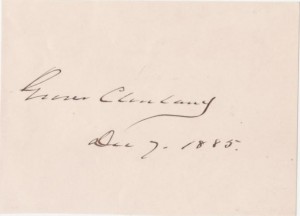 Grover Cleveland
Dec 7. 1885.